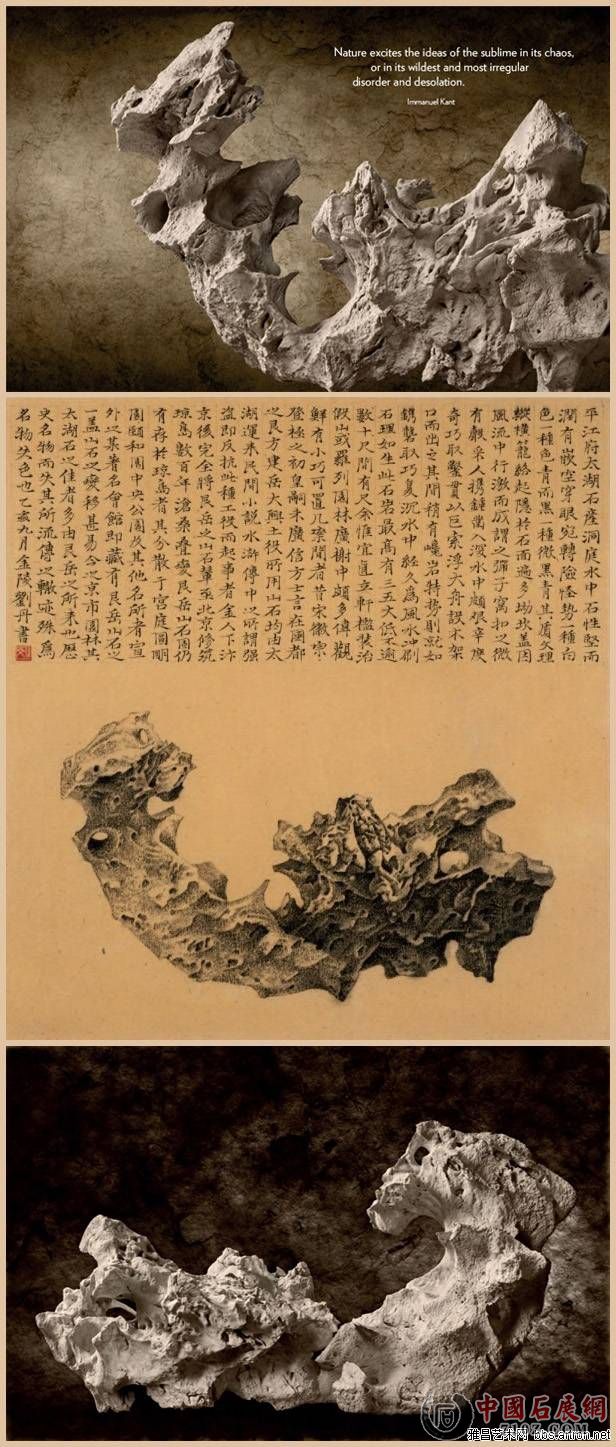 Nature excites the ideas of the sublime in its chaos,
or in its wildest and most irregular
disorder and desolation.
Immanuel Kant
平江府太湖石產洞庭水中石性堅而
潤有嵌空穿眼宛轉險怪勢一種白
色一種色青而黑一種微黑青其質文理
縱橫籠絡起隱於石面遍多坳坎蓋因
風流中行激而成謂之彈子窩扣之微
有聲采人携鎚鑿入深水中頗艱辛度
奇巧取鑿貫以巨索浮大舟設木架
而出之其間稍有巉岩特勢則就加
鐫礱取巧復沉水中經久為風水冲刷
石理如生此石岩最高有三五丈低不逾
數十尺間有尺余惟宜植立軒檻裝治
假山或羅列園林廣榭中頗多偉觀
鮮有小巧可置几案間者昔宋徽宗
登極之初皇嗣未廣信方士言在國都
之艮方建艮岳大興土役所用山石均由太
湖運来民間小說水滸傳中之所謂强
盜即反抗此種工役而起事者金人下汴
京後完全將艮岳之山石輦至北京修筑
瓊島數百年滄桑疊變艮岳山石間仍
有存於瓊島者其分散于宮庭圓明
園頤和園中央公園及其他名所者宣
外之某著名會館即藏有艮岳山石之
一蓋山石之變移甚易今之京市園林其
太湖石之佳者多由艮岳之所来也歷
史名物而失其所流傳之轍迹殊為
名物失色也乙亥九月金陵劉丹書
中國石展網
雅昌艺术网 bbs.artron.net